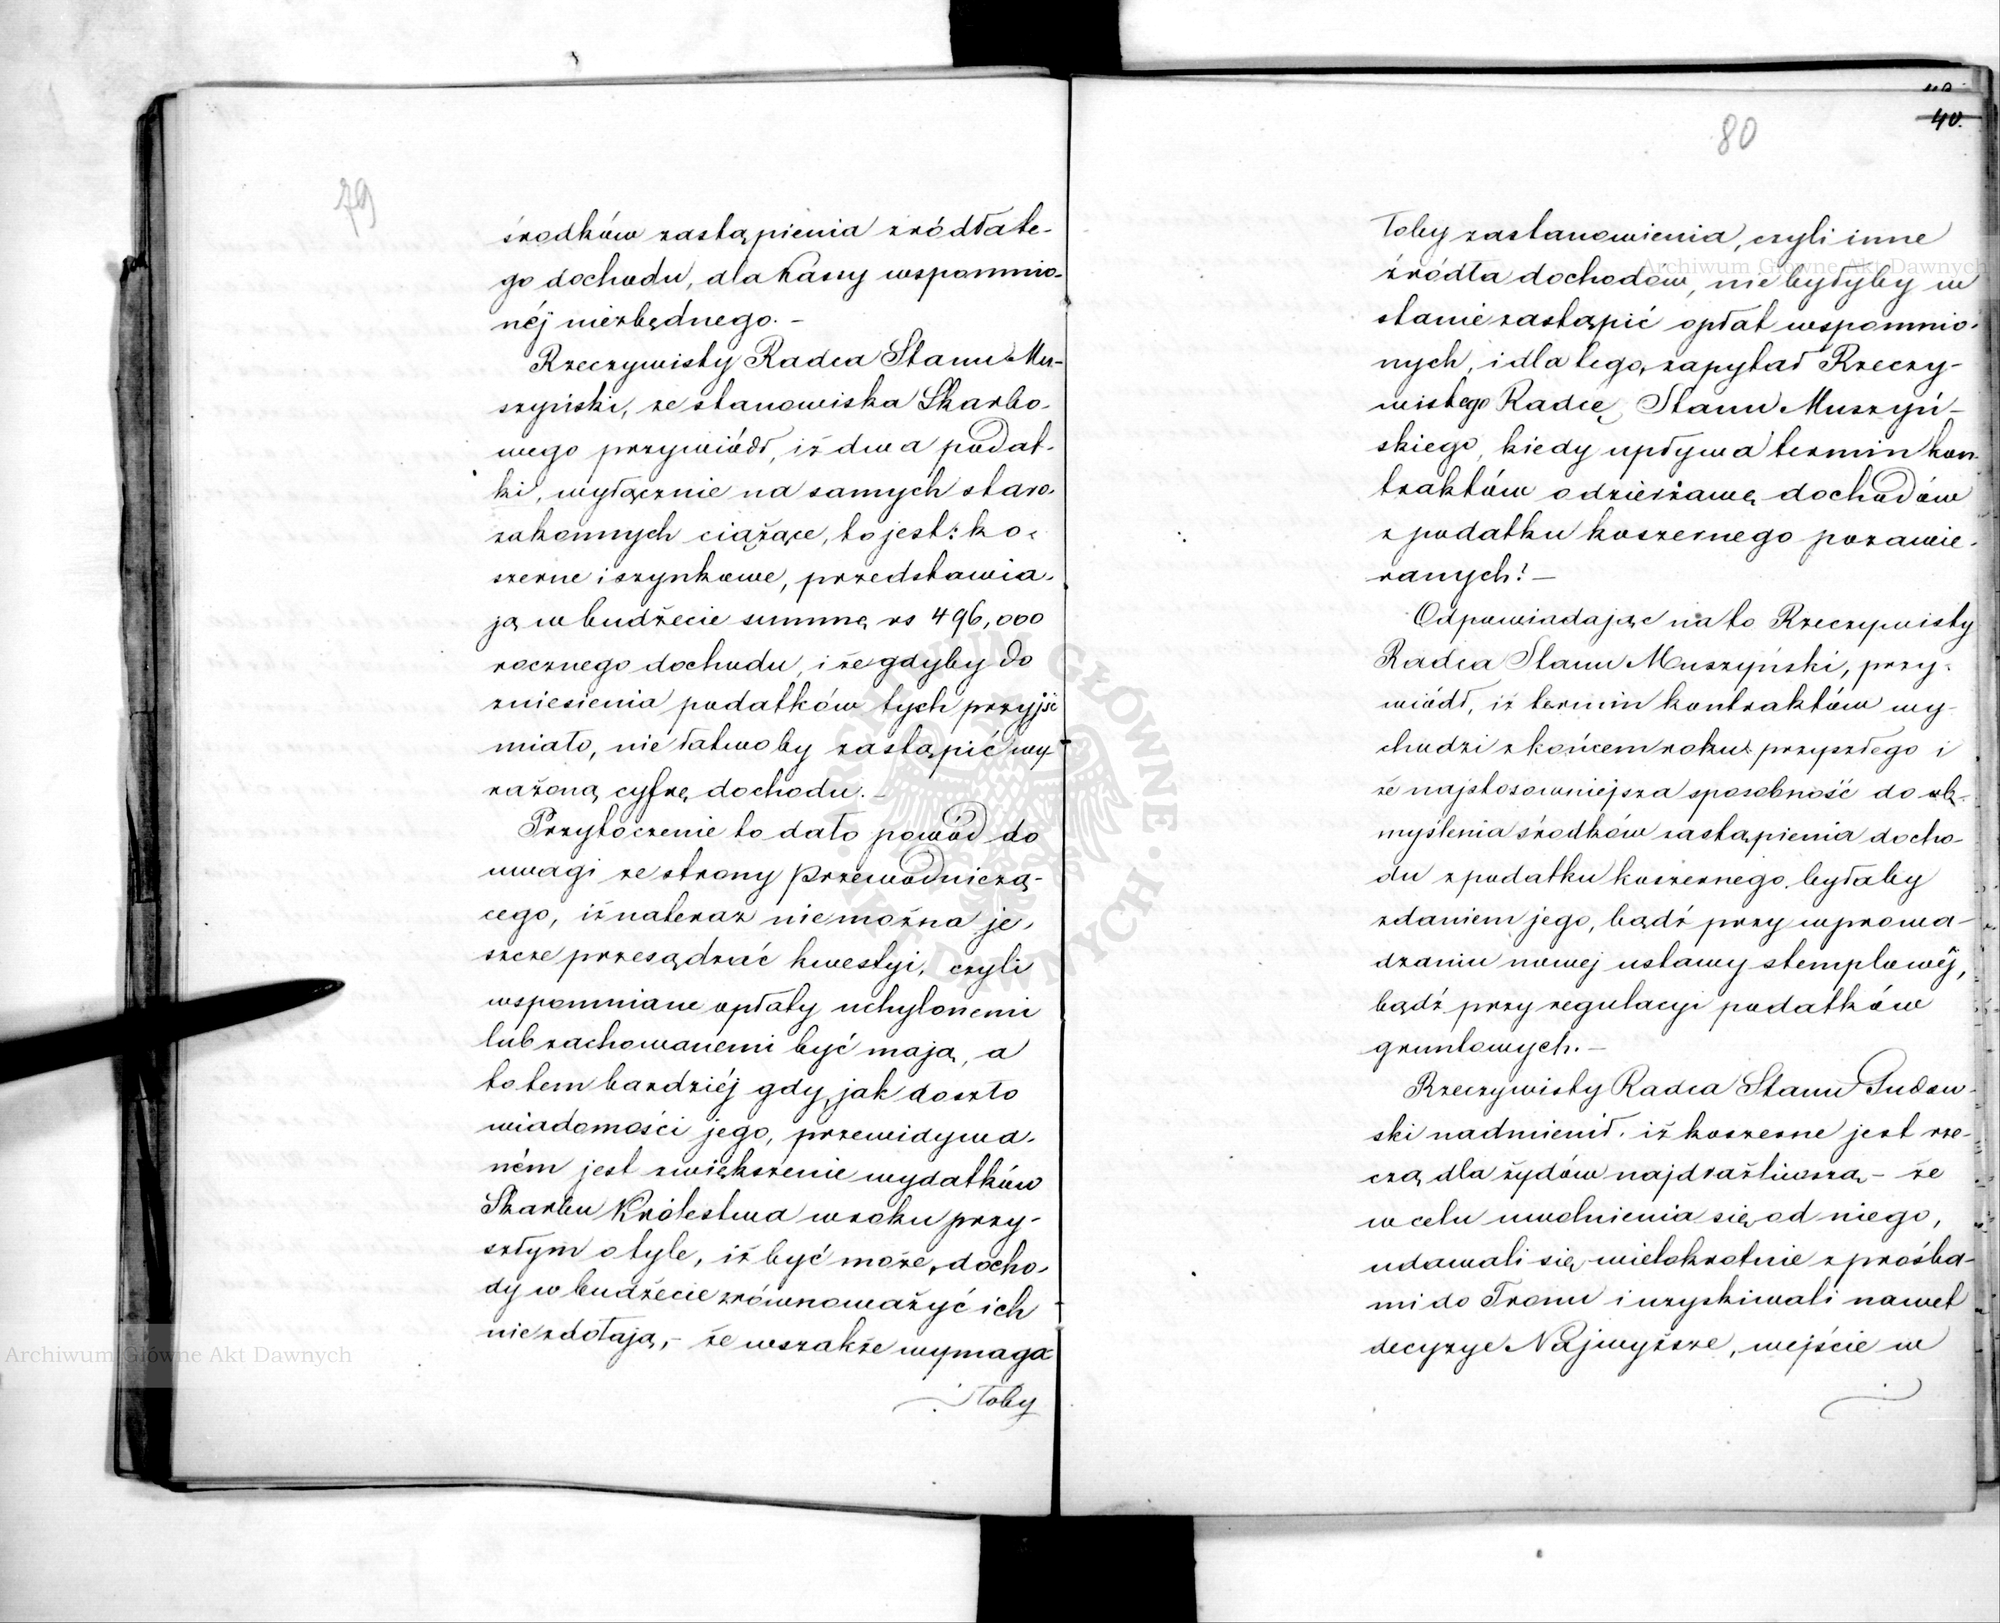 79
środków zastąpienia źródła te-
go dochodu, dla Kassy wspomnio-
néj niezbędnego. -
Rzeczywisty Radca Stanu Mu-
szyński, ze stanowiska Skarbo-
wego przywiódł, iż dwa podat-
ki, wyłącznie na samych staro-
zakonnych ciążące, to jest: ko-
szerne i szynkowe, przedstawia-
ją w budżecie summę rs 496,000
rocznego dochodu, i że gdyby do
zniesienia podatków tych przyjść
miało, nie łatwoby zastąpić wy-
rażoną cyfrę dochodu. -
Przytoczenie to dało powód do
uwagi ze strony Przewodniczą-
cego, iż na teraz nie można je-
szcze przesądzać kwestyi, czyli
wspomniane opłaty uchylonemi
lub zachowanemi być mają, a
to tem bardziéj gdy, jak doszło
wiadomości jego, przewidywa-
ném jest zwiększenie wydatków
Skarbu Królestwa w roku przy-
szłym o tyle, iż być może, docho-
dy w budżecie zrównoważyć ich
nie zdołają, - że wszakże wymaga
łoby
80
40.
łoby zastanowienia, czyli inne
źródła dochodów, nie byłyby w
stanie zastąpić opłat wspomnio-
nych, i dla tego, zapytał Rzeczy-
wistego Radcę Stanu Muszyń-
skiego, kiedy upływa termin kon-
traktów o dzierżawę dochodów
z podatku koszernego pozawie-
ranych? -
Odpowiadając na to Rzeczywisty
Radca Stanu Muszyński, przy-
wiódł, iż termin kontraktów wy-
chodzi z końcem roku przyszłego i
że najstosowniejsza sposobność do ob-
myślenia środków zastąpienia docho-
du z podatku koszernego, byłaby
zdaniem jego, bądź przy wprowa-
dzaniu nowej ustawy stemplowéj,
bądź przy regulacyi podatków
gruntowych. -
Rzeczywisty Radca Stanu Gudow-
ski nadmienił, iż koszerne jest rze-
czą dla żydów najdrażliwszą, - że
w celu uwolnienia się od niego,
udawali się wielokrotnie z prośba-
mi do Tronu i uzyskiwali nawet
decyzye Najwyższe, wejście w
Archiwum Główne Akt Dawnych
Archiwum Główne Akt Dawnych
ARCHIWUM GŁÓWNE AKT DAWNYCH